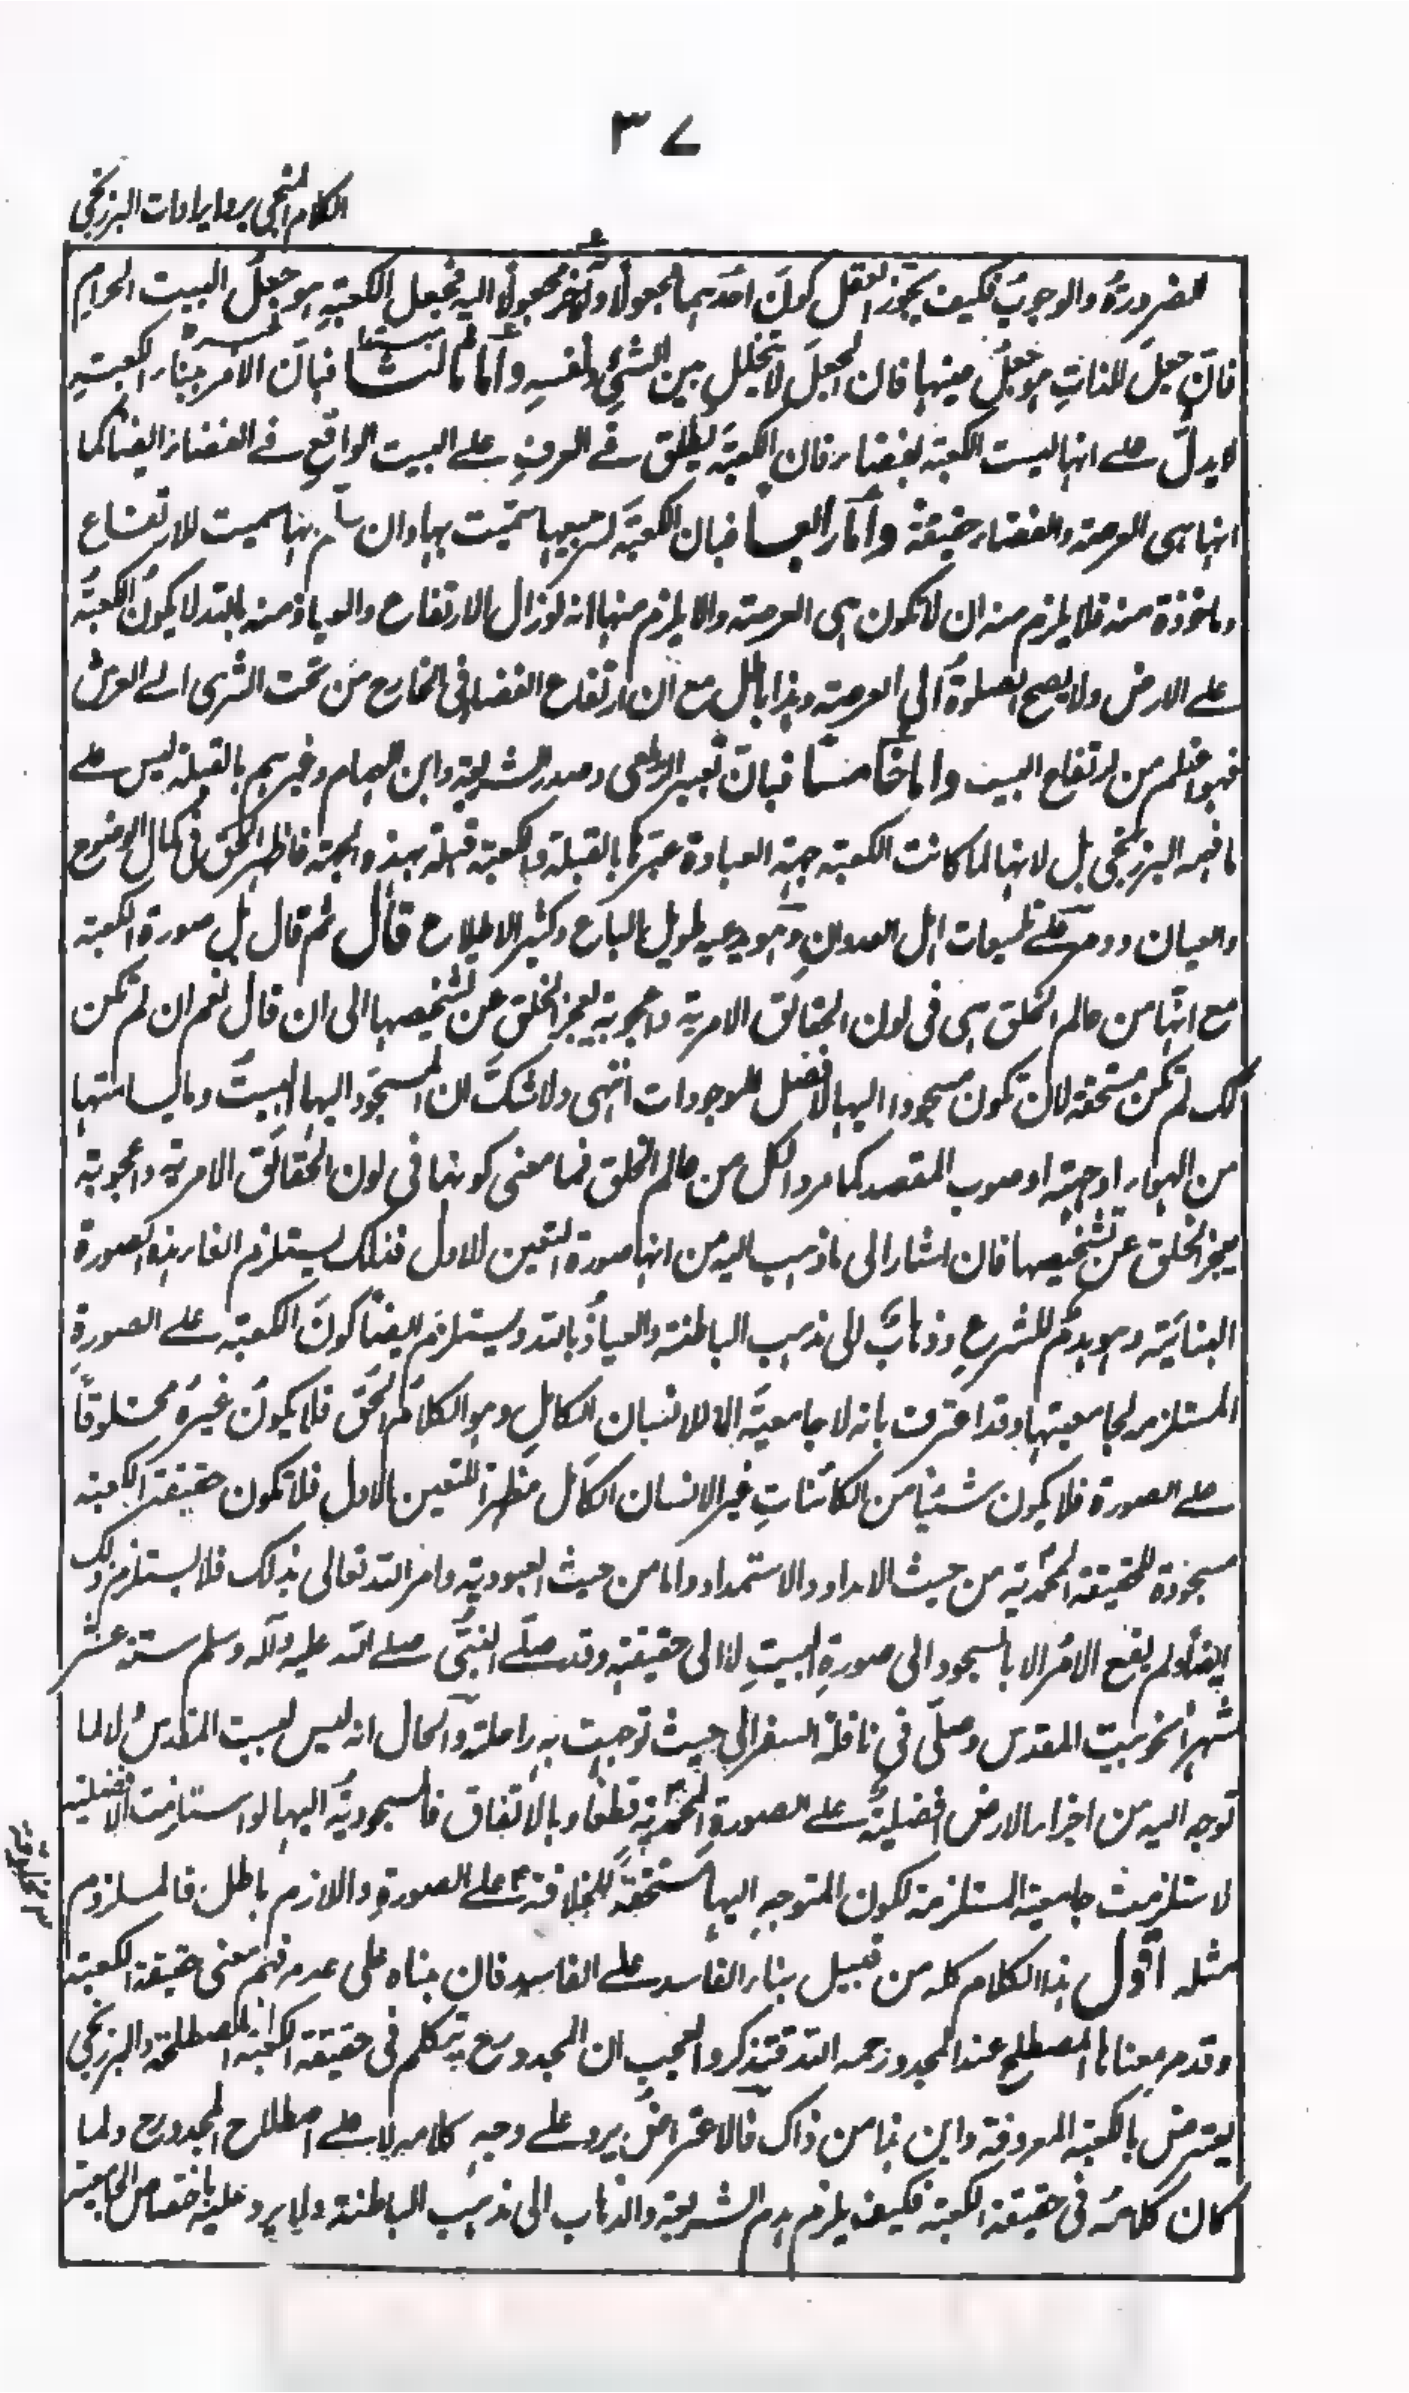 ٣٧
الكلام المنجي برد ايرادات البرزنجي
الضرورة والوجوب فكيف يجوز العقل كون احدهما مجعولا والآخر مجعولا اليه فجعل الكعبة هو جعل البيت الحرام
فان جعل للذات هو جعل عينها فان الجعل لا يتخلل بين الشيء ونفسه واما ثالثا فبان الامر ببناء الكعبة
لا يدل على انها ليست الكعبة بفضاء فان الكعبة يطلق في العرف على البيت الواقع في الفضاء ايضا كما
انها هي العرصة والفضاء حقيقة واما رابعا فبان الكعبة لتربيعها سميت بها وان سلم انها سميت للارتفاع
وماخوذة منه فلا يلزم منه ان لا تكون هي العرصة والا يلزم منها انه لو زال الارتفاع والعياذ منه بالله لا يكون الكعبة
على الارض ولا يصح الصلوة الى العرصة وهذا باطل مع ان ارتفاع الفضاء في الخارج من تحت الثرى الى العرش
فهو اعظم من ارتفاع البيت واما خامسا فبان تعبير الزيلعي وصدر الشريعة وابن الهمام وغيرهم بالقبلة ليس على
ما فهمه البرزنجي بل لانها لما كانت الكعبة جهة العبادة عبر كما بالقبلة والكعبة قبلة بهذه الجهة فاظهر الحق في كمال الوضوح
والعيان ودمر على تلميعات اهل العدوان وهو يدعيه طويل الباع وكثير الاطلاع قال ثم قال بل صورة الكعبة
مع انها من عالم الخلق هي في لون الحقائق الامرية واعجوبة يعجز الخلق عن تشخيصها الى ان قال نعم ان لم تكن
كك لم تكن مستحقة لان تكون مسجودا اليها لافضل الموجودات انتهى ولا شك ان المسجود اليها البيت وما يسامتها
من الهواء او جهته او صوب المقصد كما مر والكل من عالم الخلق فما معنى كونها في لون الحقائق الامرية واعجوبة
يعجز الخلق عن تشخيصها فان اشار الى ما ذهب اليه من انها صورة التعين الاول فذلك يستلزم الغاء هذه الصورة
البنائية وهو هدم للشرع وذهاب الى مذهب الباطنة والعياذ بالله ويستلزم ايضا كون الكعبة على الصورة
المستلزمة لجامعيتها وقد اعترف بانه لا جامعية الا للانسان الكامل وهو الكلام الحق فلا يكون غيره مخلوقا
على الصورة فلا يكون شيئا من الكائنات غير الانسان الكامل مظهرا للتعين الاول فلا تكون حقيقة الكعبة
مسجودة للحقيقة المحمدية من حيث الامداد والاستمداد واما من حيث العبودية وامر الله تعالى بذلك فلا يستلزم ذلك
ايضا ولم يقع الامر الا بالسجود الى صورة البيت لا الى حقيقته وقد صلى النبي صلى الله عليه وآله وسلم ستة عشر
شهرا نحو بيت المقدس وصلى في نافلة السفر الى حيث توجهت به راحلته والحال انه ليس لبيت المقدس ولا لما
توجه اليه من اجزاء الارض افضلية على الصورة المحمدية قطعا وبالاتفاق فالمسجودية اليها لو استلزمت الافضلية
لاستلزمت جامعيته المستلزمة لكون المتوجه اليها مستحقة للخلافة على الصورة واللازم باطل فالملزوم
مثله اقول هذا الكلام كله من قبيل بناء الفاسد على الفاسد فان مبناه على عدم فهم معنى حقيقة الكعبة
وقد مر معناها المصطلح عند المجدد رحمه الله فتذكر والعجب ان المجدد رح يتكلم في حقيقة الكعبة المصطلحة والبرزنجي
يعترض بالكعبة المعروفة واين هذا من ذاك فالاعتراض يرد على وجه كلامه لا على اصطلاح المجدد رح ولما
كان كلامه في حقيقة الكعبة فكيف يلزم هدم الشريعة والذهاب الى مذهب الباطنة ولا يرد عليه باختصاص الجامعية